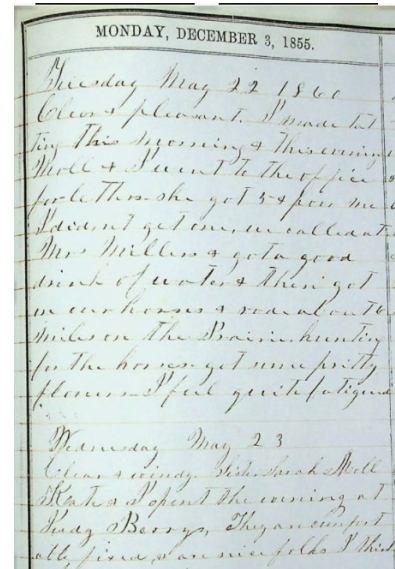 MONDAY, DECEMBER 3, 1855.
Tuesday May 22 1860
Clear & pleasant. I made tat
ting this morning & this evening
Moll & I went to the office
for letters she got 5 & poor me
I didn't get one, we called at
Mrs Millers & got a good
drink of water & then got
on our horses & rode about 6
miles on the Prairie hunting
for the horses got some pritty
flowers I feel quite fatigued
Wednesday May 23
Clear & windy Sister Sarah Moll
Kate & I spent the evening at
Judg Berrys, They are comfort
able, fixed, & are nice folks I think